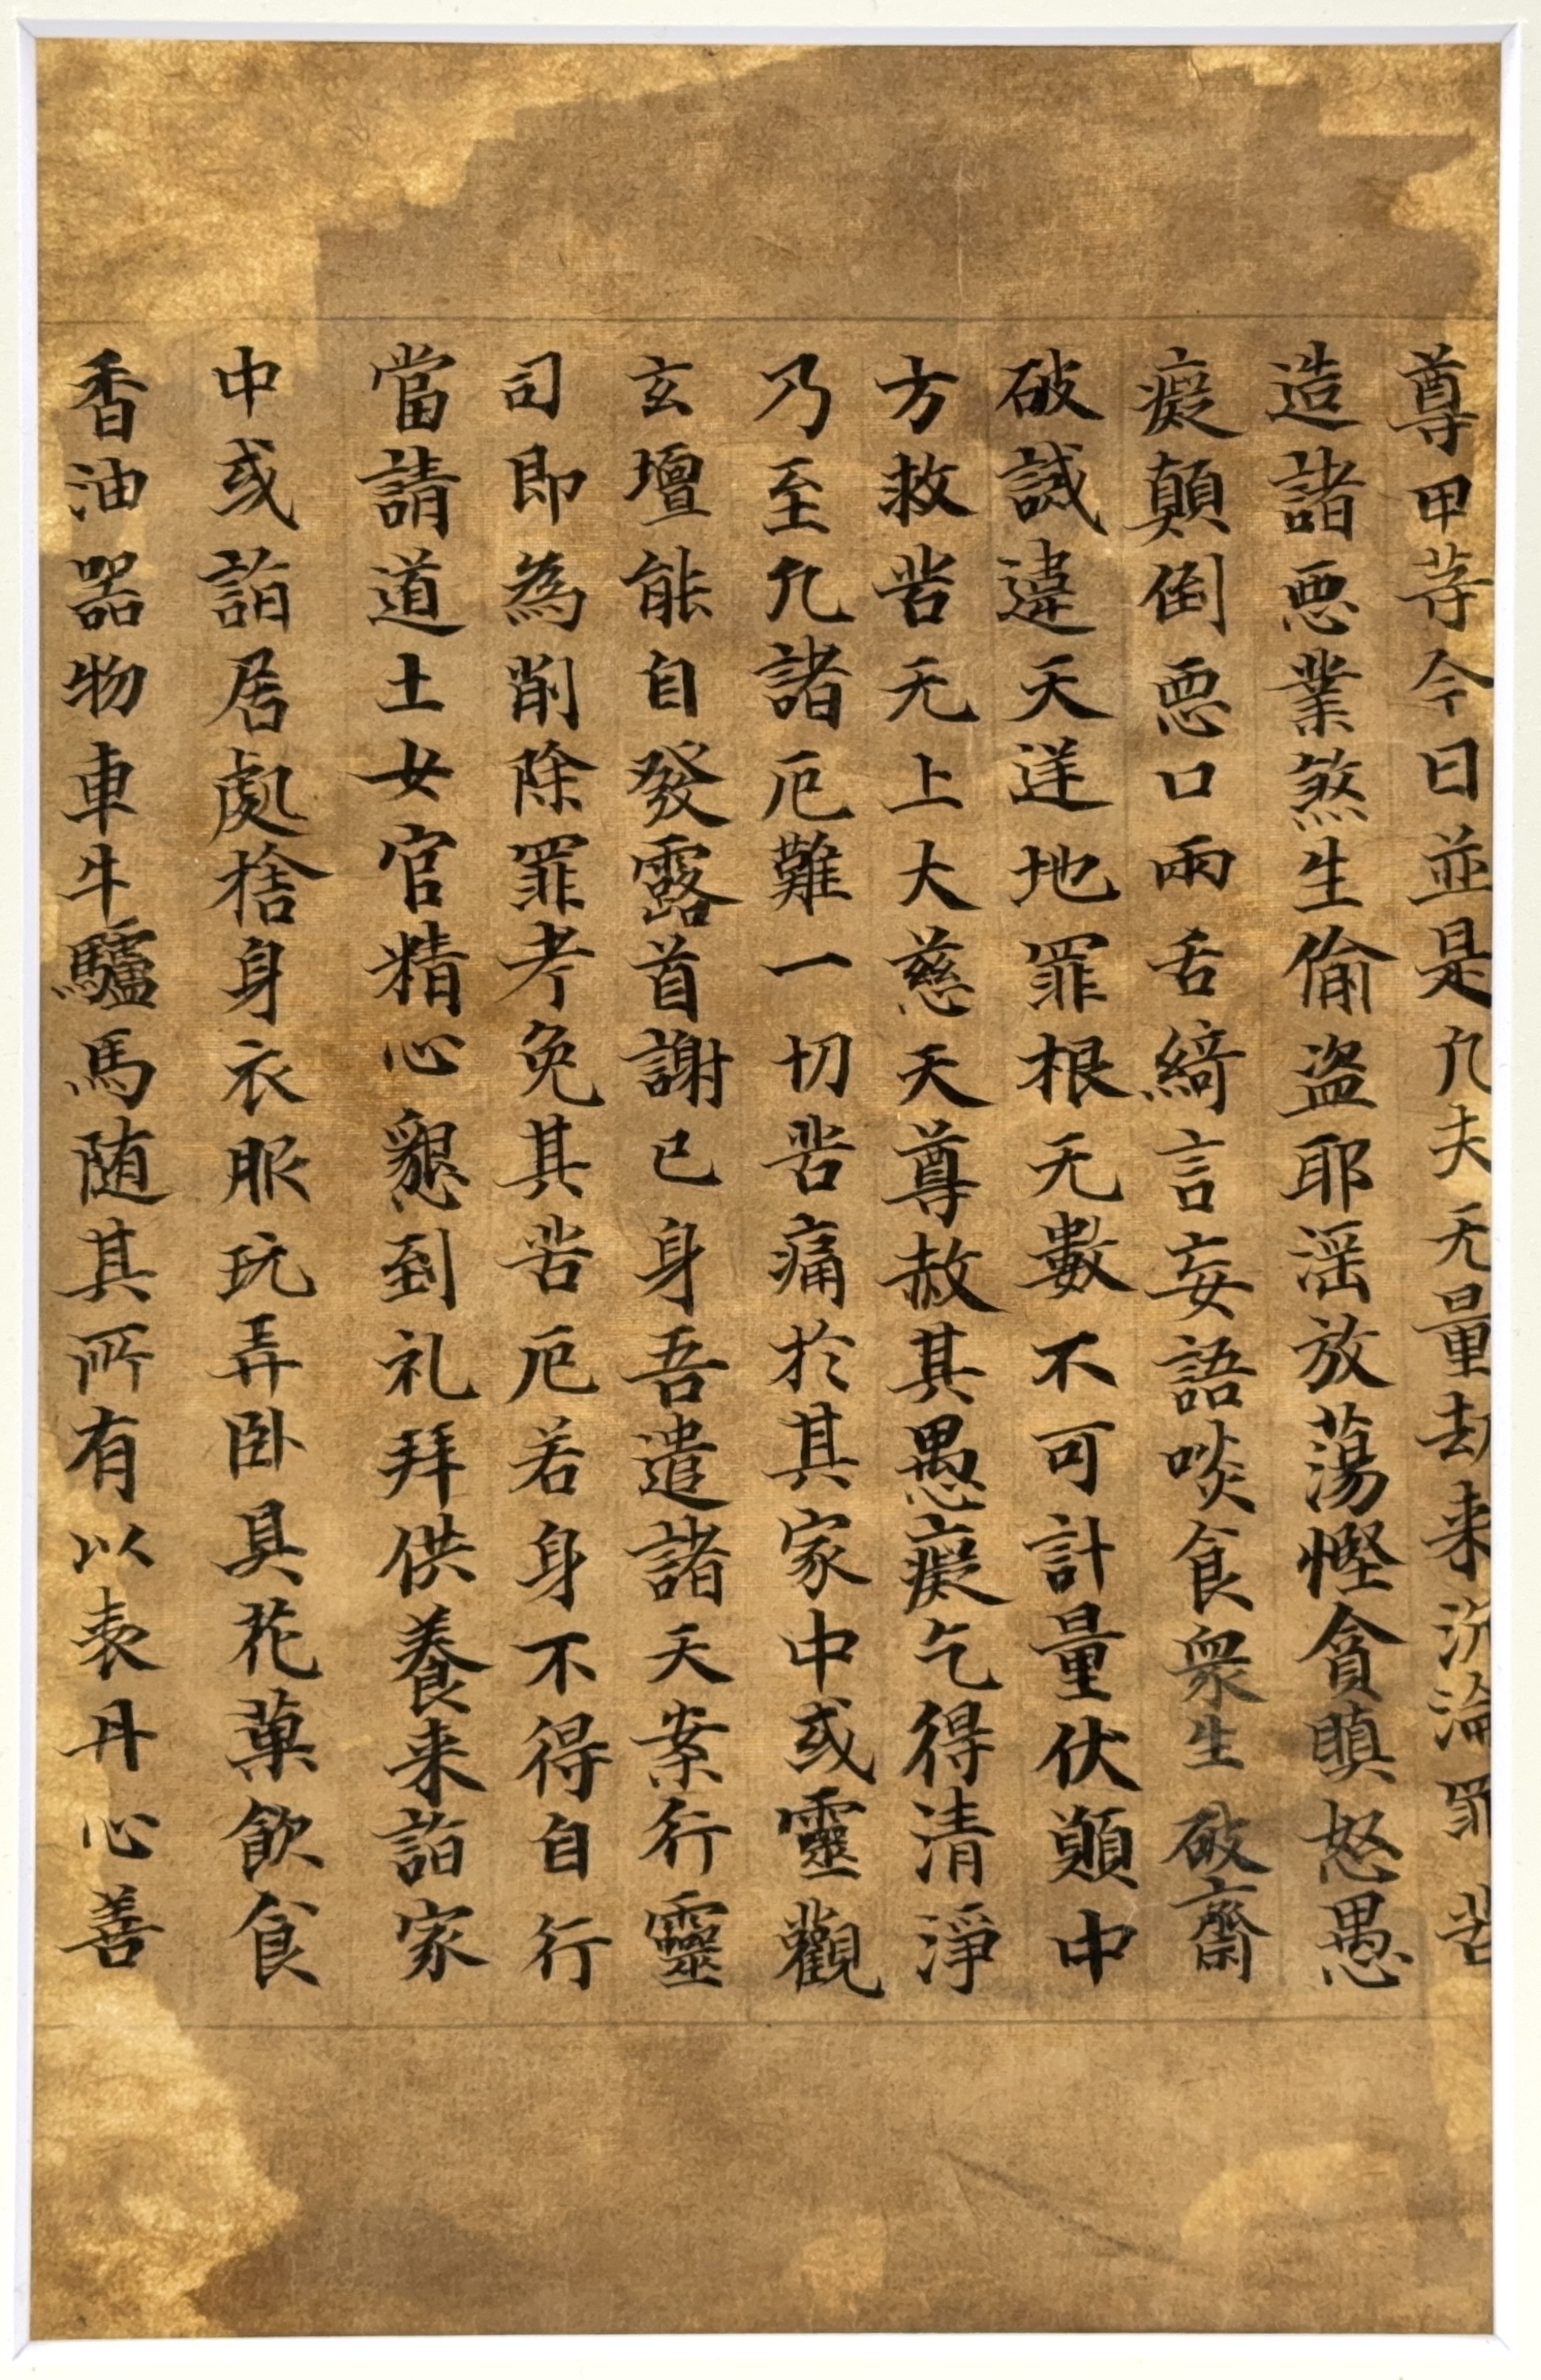 尊甲等今日並是凡夫无量劫来沉淪罪苦
造諸惡業煞生偷盗耶淫放蕩慳貪瞋怒愚
癡顛倒惡口兩舌綺言妄語啖食衆生破齋
破誡違天逆地罪根无數不可計量伏願中
方救苦无上大慈天尊赦其愚癡乞得清淨
乃至凡諸厄難一切苦痛於其家中或靈觀
玄壇能自發露首謝已身吾遣諸天案行靈
司即為削除罪考免其苦厄若身不得自行
當請道士女官精心懇到礼拜供養来詣家
中或詣居處捨身衣服玩弄卧具花菓飲食
香油器物車牛驢馬随其所有以表丹心善